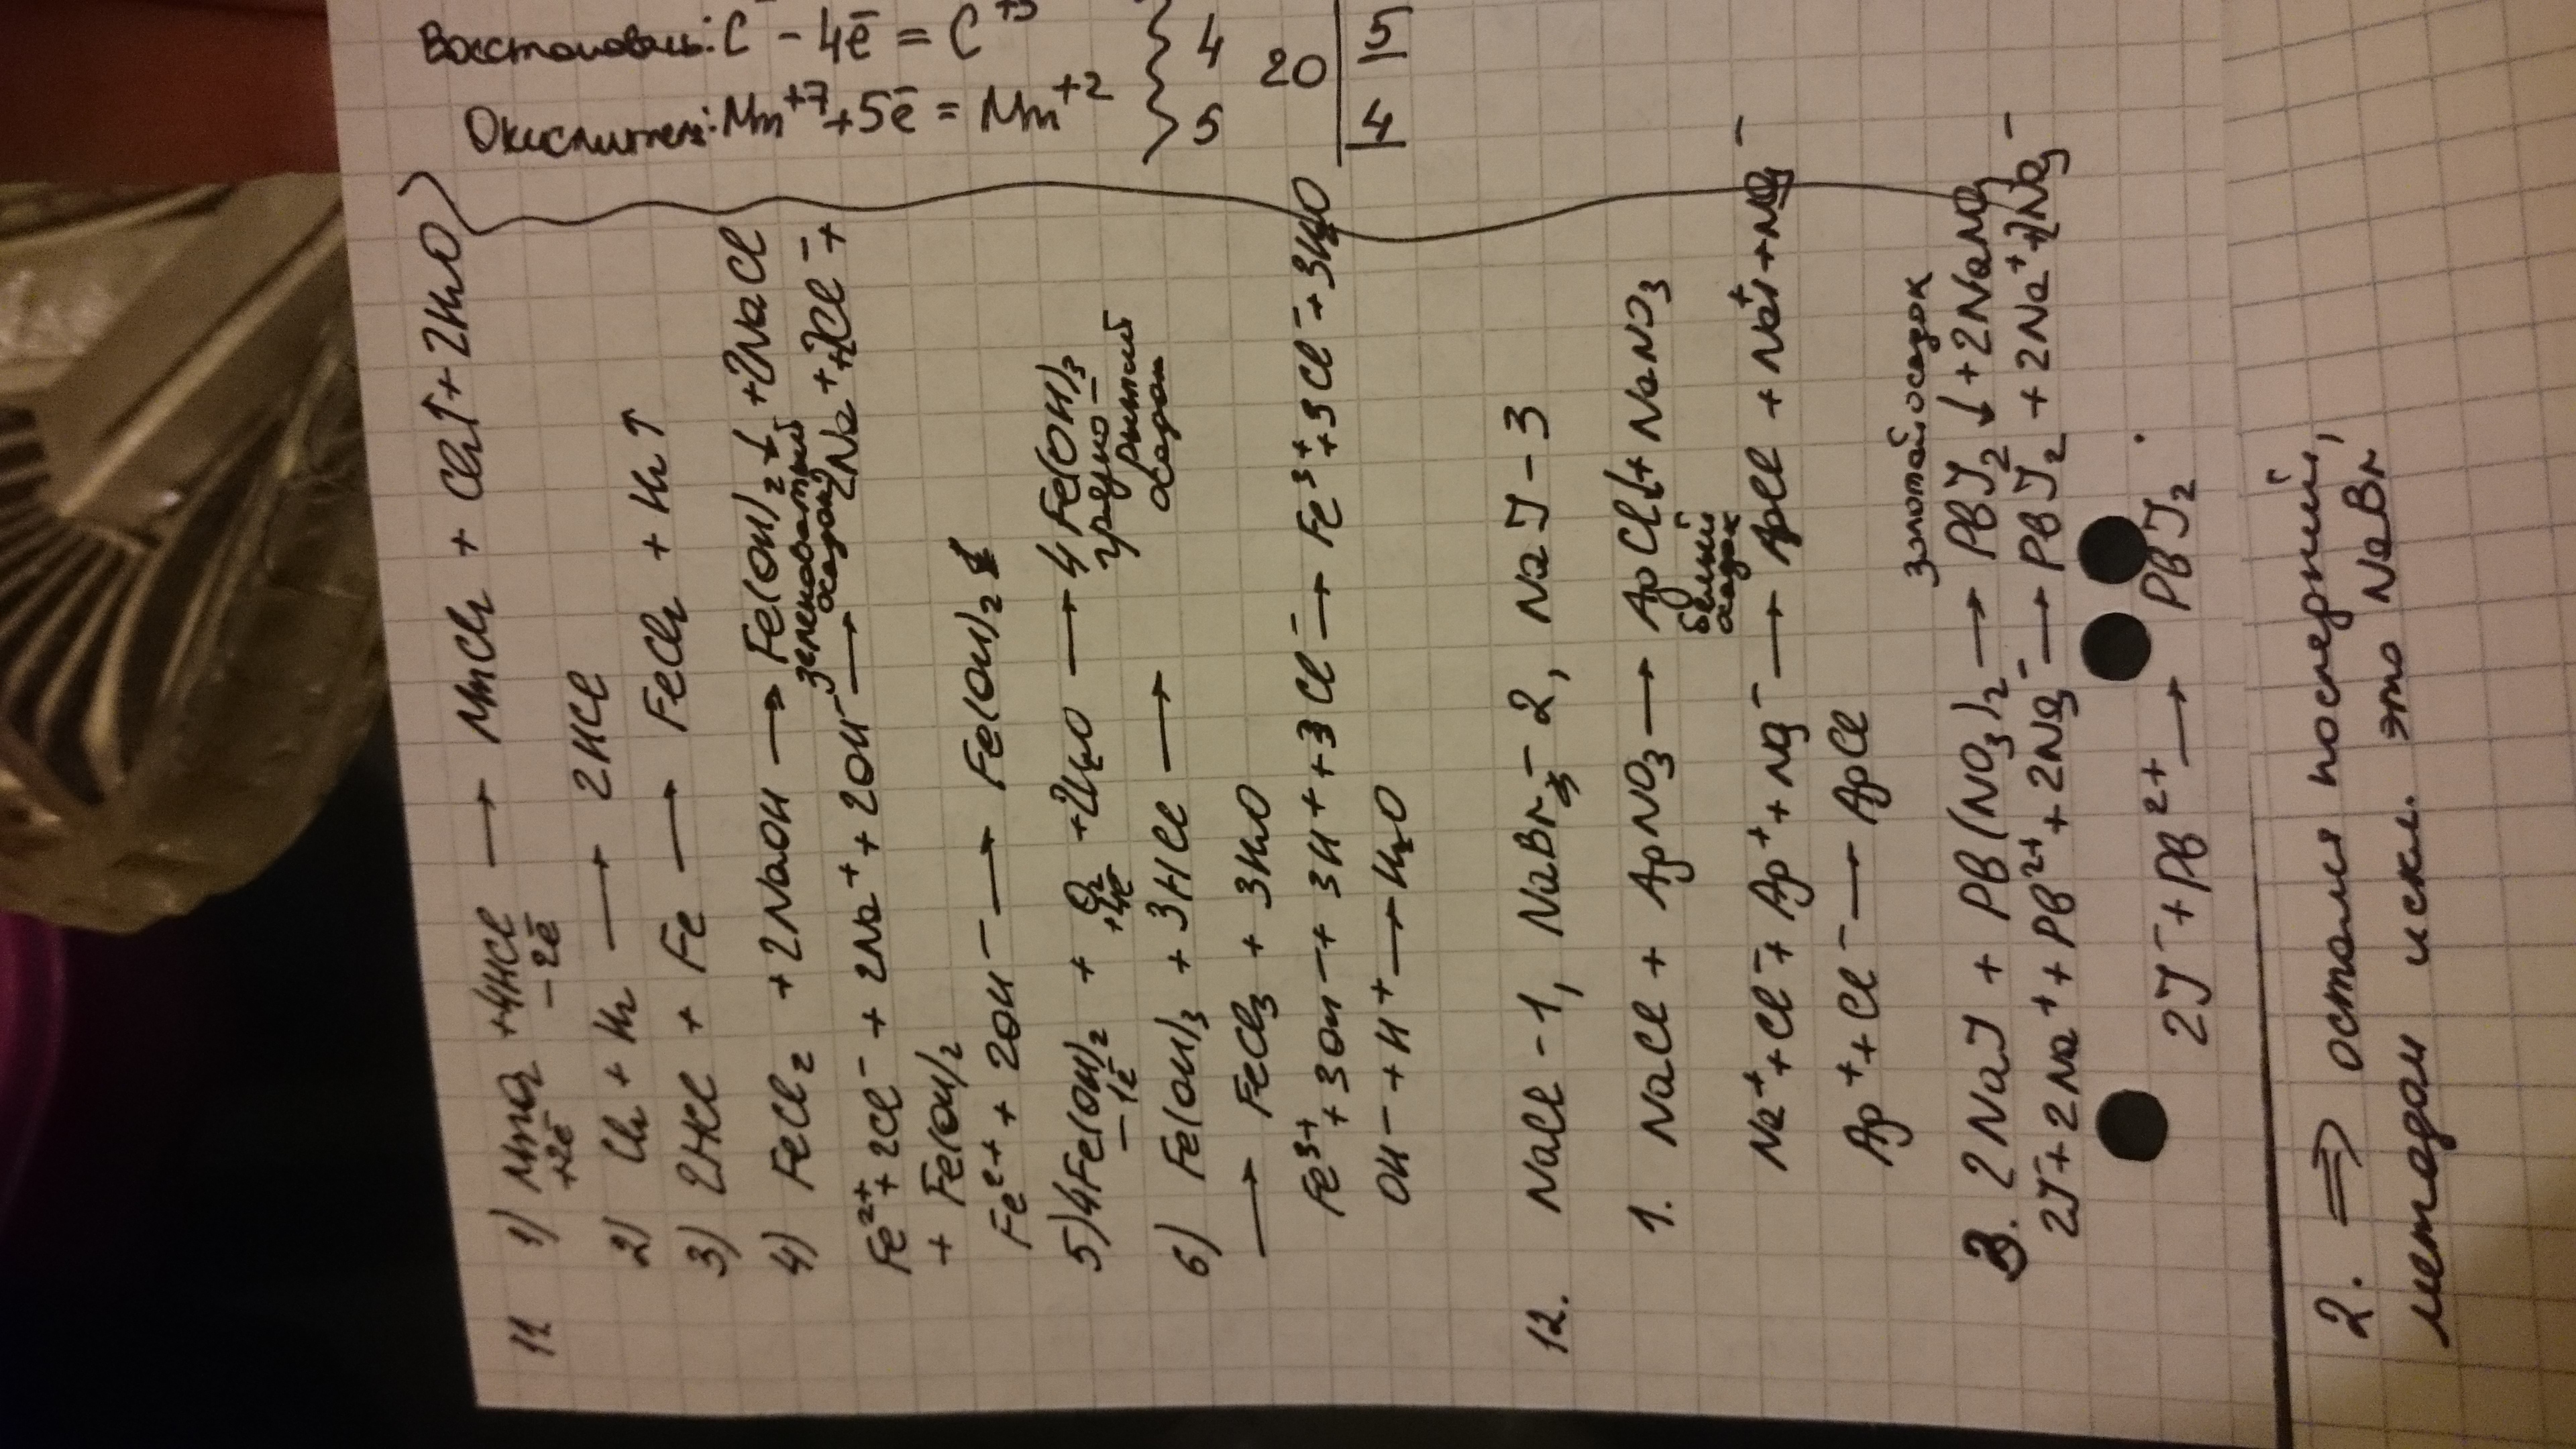 Восстановль: C⁻ - 4ē = C⁺³ } 4 | 20 | 5
Окислитель: Mn⁺⁷ + 5ē = Mn⁺² } 5 | 4
11 1) MnO₂ + 4HCl → MnCl₂ + Cl₂↑ + 2H₂O
+2ē -2ē
2) Cl₂ + H₂ → 2HCl
3) 2HCl + Fe → FeCl₂ + H₂↑
4) FeCl₂ + 2NaOH → Fe(OH)₂↓ + 2NaCl
зеленоватый осадок
Fe²⁺ + 2Cl⁻ + 2Na⁺ + 2OH⁻ → 2Na⁺ + 2Cl⁻ +
+ Fe(OH)₂
Fe²⁺ + 2OH⁻ → Fe(OH)₂
5) 4Fe(OH)₂ + O₂ + 2H₂O → 4Fe(OH)₃
-1ē +4ē
осадок
6) Fe(OH)₃ + 3HCl →
→ FeCl₃ + 3H₂O
Fe³⁺ + 3OH⁻ + 3H⁺ + 3Cl⁻ → Fe³⁺ + 3Cl⁻ + 3H₂O
OH⁻ + H⁺ → H₂O
12. NaCl - 1, NaBr - 2, NaJ - 3
1. NaCl + AgNO₃ → AgCl↓ + NaNO₃
белый осадок
Na⁺ + Cl⁻ + Ag⁺ + NO₃⁻ → AgCl + Na⁺ + NO₃⁻
Ag⁺ + Cl⁻ → AgCl
золотой осадок
3. 2NaJ + PB(NO₃)₂ → PBJ₂↓ + 2NaNO₃
2J⁻ + 2Na⁺ + PB²⁺ + 2NO₃⁻ → PBJ₂ + 2Na⁺ + 2NO₃⁻
2J⁻ + PB²⁺ → PBJ₂
2. ⇒ остался последний,
методом искл. это NaBr